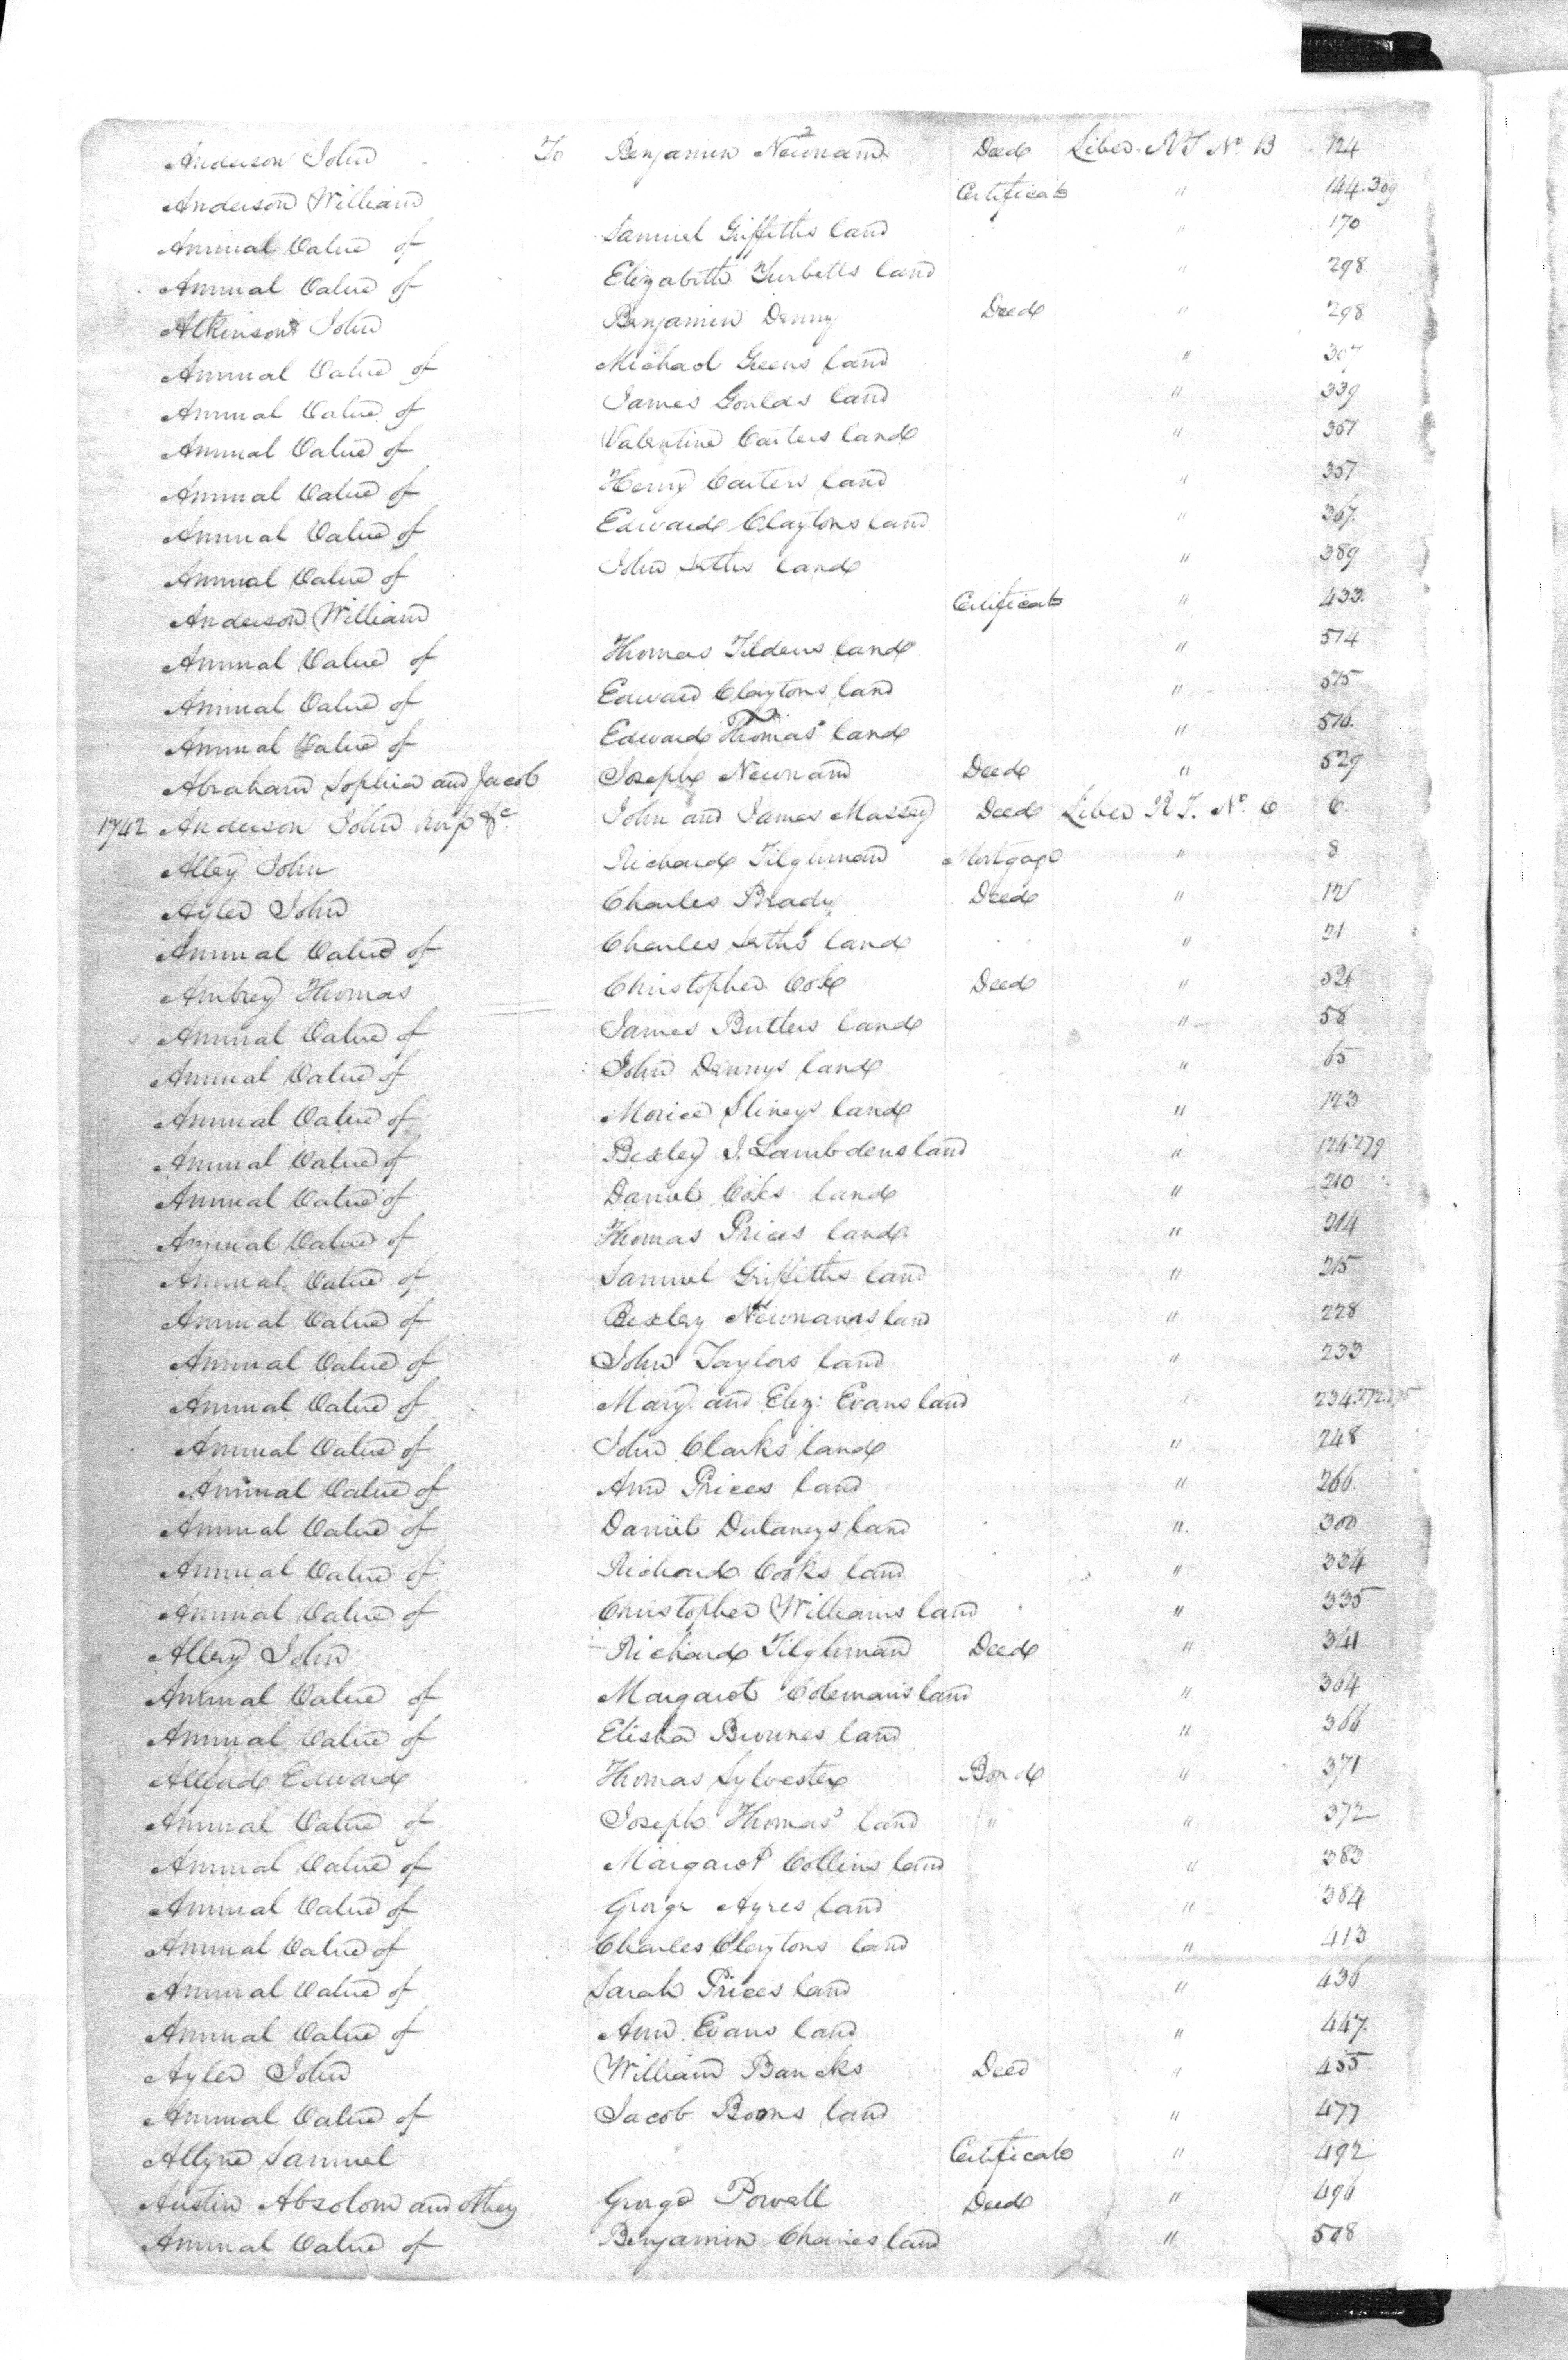 Anderson John To Benjamin Newnam Deed Liber R T No. B 124
Anderson William Certificate " 144.309
Annual Value of Samuel Griffiths land " 170
Annual Value of Elizabeth Turbutts land " 298
Atkinson John Benjamin Denny Deed " 298
Annual Value of Michael Greens land " 307
Annual Value of James Goulds land " 339
Annual Value of Valentine Carters land " 357
Annual Value of Henry Carters land " 357
Annual Value of Edward Claytons land " 367.
Annual Value of John Seths land " 389
Anderson William Certificate " 433.
Annual Value of Thomas Tildens land " 514
Annual Value of Edward Claytons land " 515
Annual Value of Edward Thomas' land " 516.
Abraham Sophia and Jacob Joseph Newnam Deed " 529
1742 Anderson John &c Jno and James Massey Deed Liber R T. No. C 6.
Alley John Richard Tilghman Mortgage " 8
Ayler John Charles Brady Deed " 12
Annual Value of Charles Seths land " 21
Ambrey Thomas Christopher Cox Deed "
Annual Value of James Butlers land " 58
Annual Value of John Dennys land " 65
Annual Value of Morice Slineys land " 123
Annual Value of Bexley J. Lambdens land " 124.279
Annual Value of Daniel land " 210
Annual Value of Thomas Prices land " 214
Annual Value of Samuel Griffiths land " 215
Annual Value of Bexley Newnams land " 228
Annual Value of John Taylors land " 233
Annual Value of Mary and Eliz: Evans land " 234.272.275
Annual Value of John Clarks land " 248
Annual Value of Ann Prices land " 266.
Annual Value of Daniel Dulaneys land " 300
Annual Value of Richard Cooks land " 334
Annual Value of Christopher Williams land " 335
Alley John Richard Tilghman Deed " 341
Annual Value of Margaret Colemans land " 364
Annual Value of Elisha Brownes land " 366
Allford Edward Thomas Sylvester Bond " 371
Annual Value of Joseph Thomas' land " " 372
Annual Value of Margaret Collins land " 383
Annual Value of George Ayres land " 384
Annual Value of Charles Claytons land " 413
Annual Value of Sarah Prices land " 436
Annual Value of Ann Evans land " 447.
Ayler John William Bancks Deed " 455
Annual Value of Jacob Boons land " 477
Allyne Samuel Certificate " 492
Austin Absolom and others George Powell Deed " 496
Annual Value of Benjamin Chaires land " 518